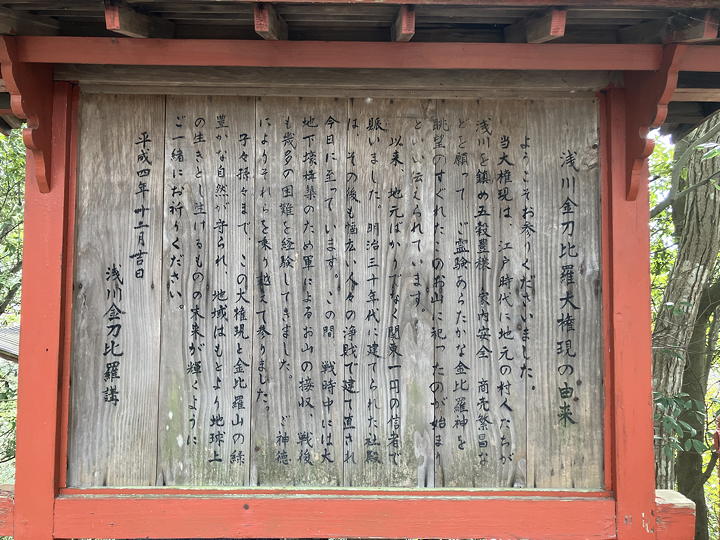 浅川金刀比羅大権現の由来
ようこそお参りくださいました。
当大権現は、江戸時代に地元の村人たちが
浅川を鎮め五穀豊穣 家内安全 商売繁昌な
どを願って、ご霊験あらたかな金比羅神を
眺望のすぐれたこのお山に祀ったのが始まり
といい伝えられています。
以来、地元ばかりでなく関東一円の信者で
賑いました。明治三十年代に建てられた社殿
は、その後も幅広い人々の浄財で建て直され
今日に至っています。この間 戦時中には大
地下壕構築のため軍によるお山の接収、戦後
も幾多の困難を経験してきました。 ご神徳
によりそれらを乗り越えて参りました。
子々孫々まで、この大権現と金比羅山の緑
豊かな自然が守られ、地域はもとより地球上
の生きとし生けるものの未来が輝くように
ご一緒にお祈りください。
平成四年十二月吉日
浅川金刀比羅講